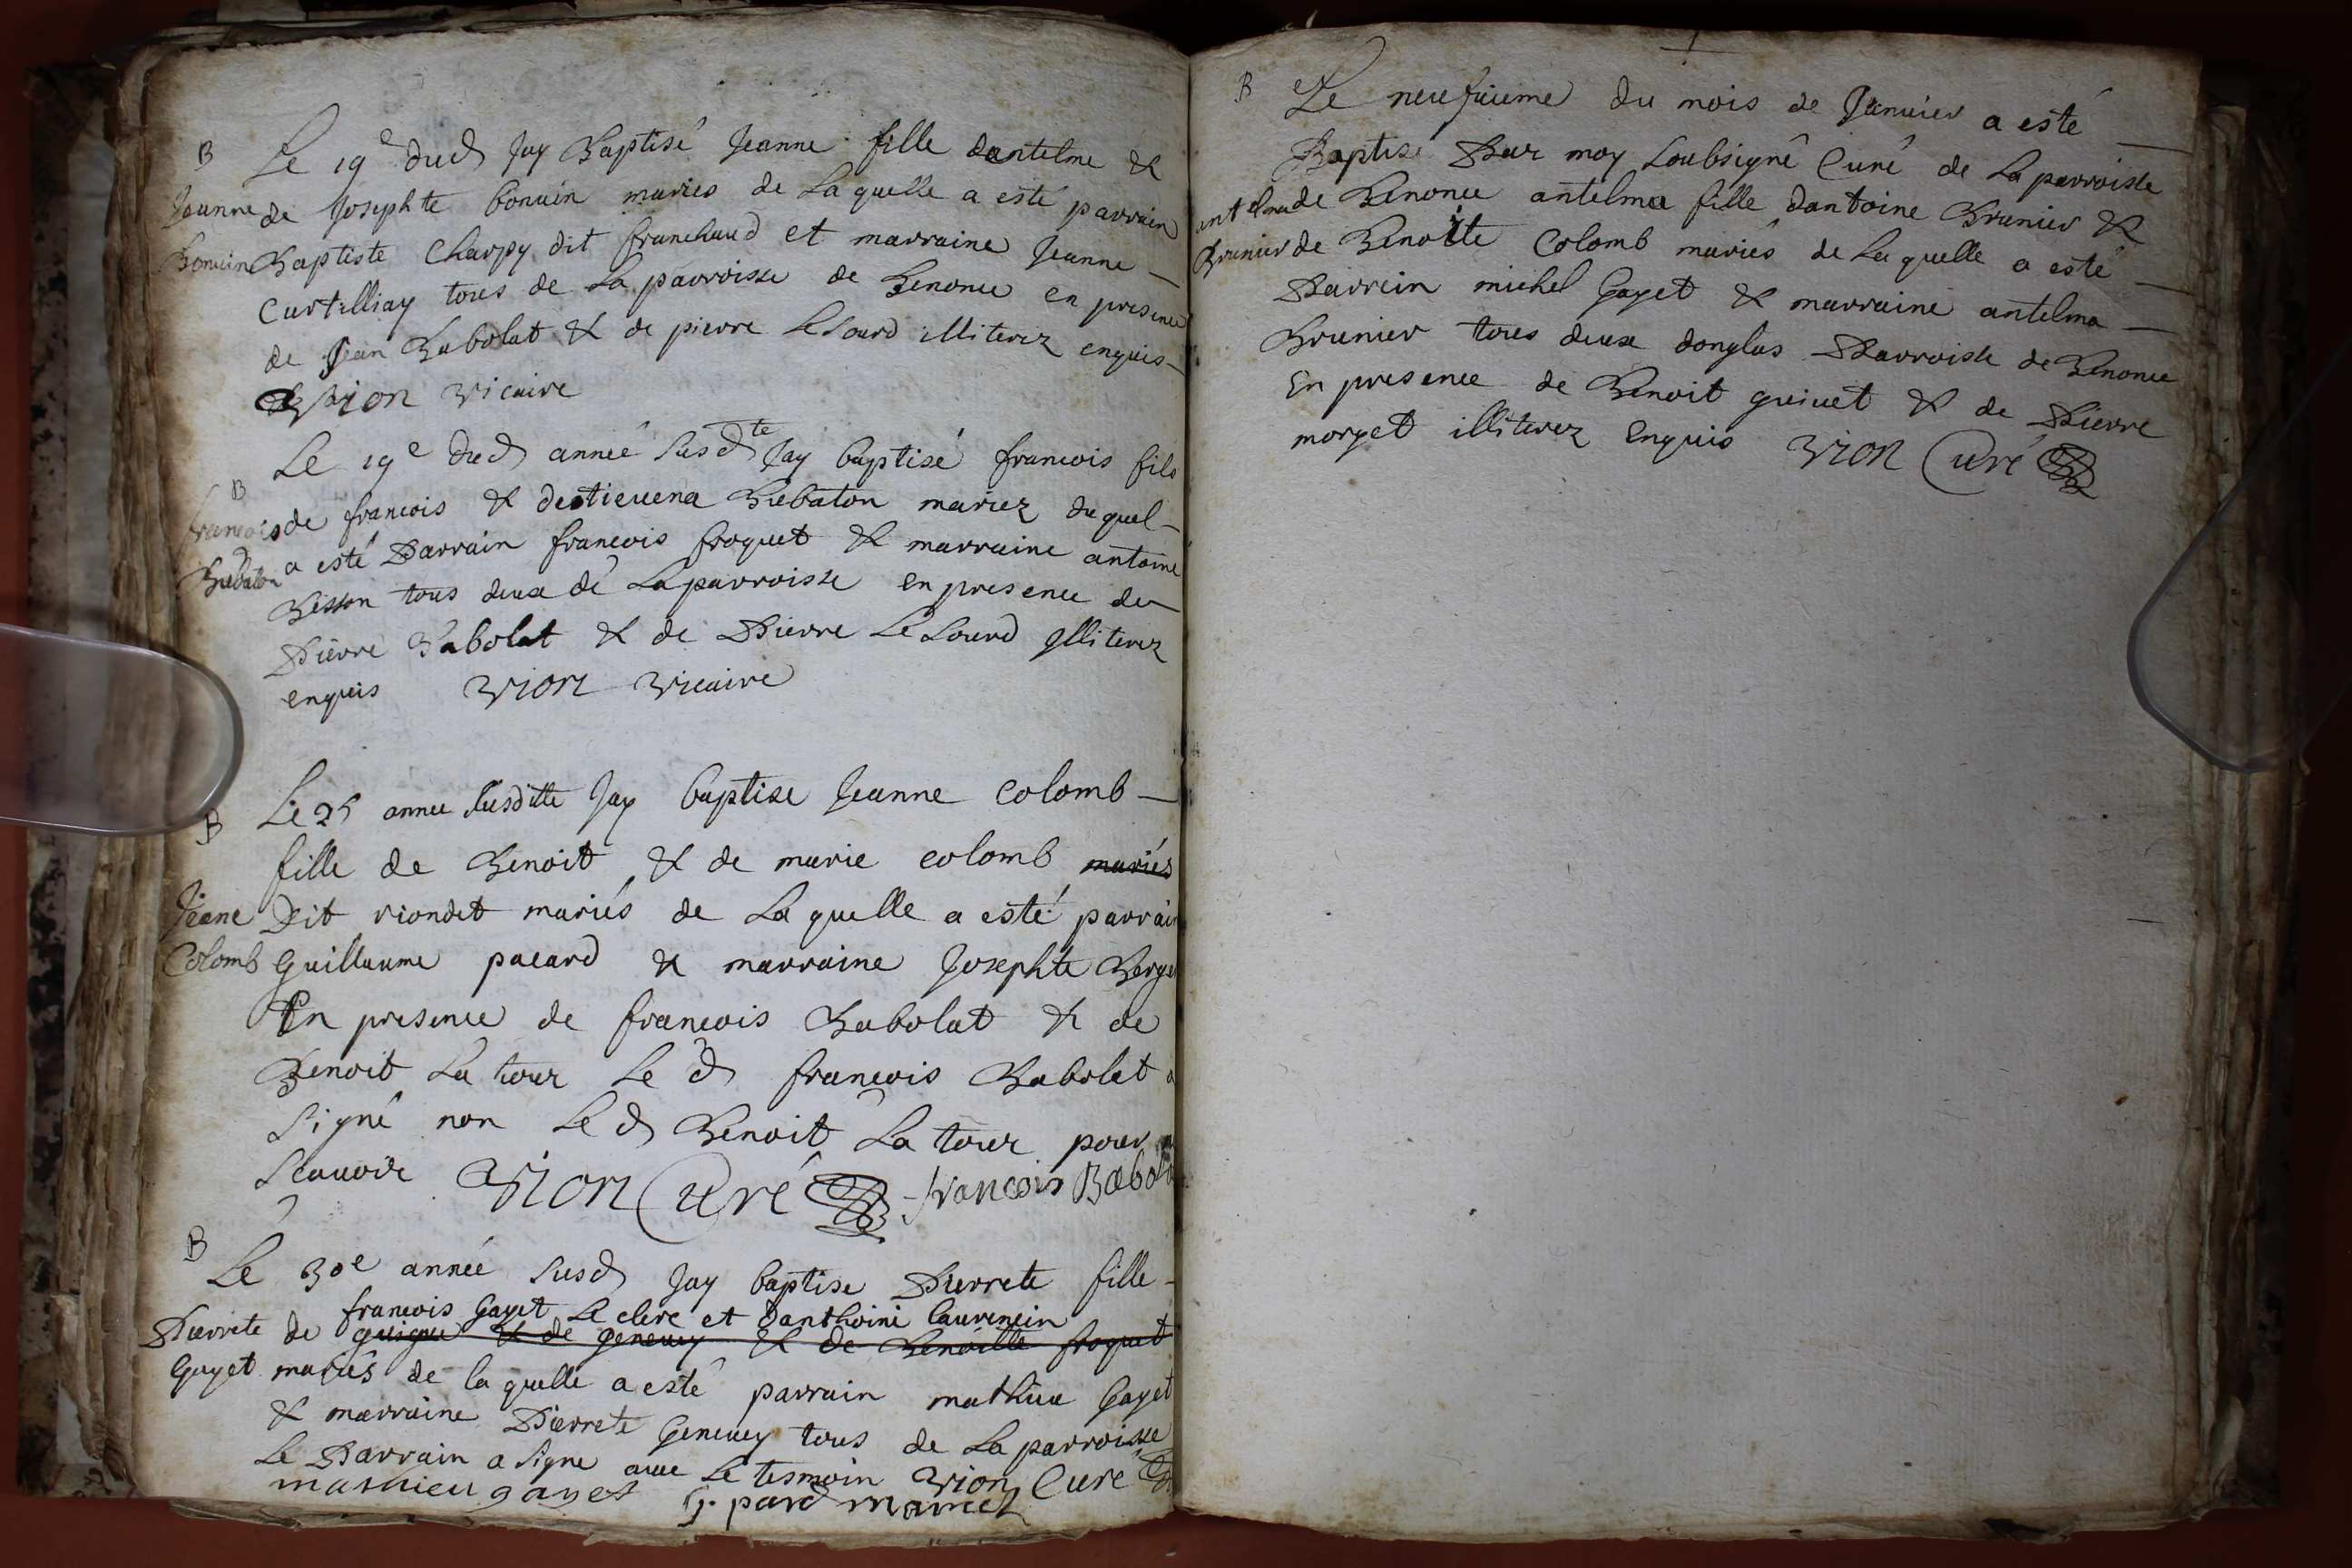 B
Le 19e dud Jay Baptisé Jeanne fille dantelme &
Jeanne de Josephte bonuin maries de Laquelle a esté parrain
Bonuin Baptiste Charpy dit franchaud et marraine Jeanne
Curtilliay tous de La parroisse de Benonce en presence
de Jean Babolat & de pierre Lesourd illiterez enquis
Vion Vicaire
B
Le 19e dud année susdte Jay baptisé francois fils
francois de francois & destieuena Brebaton mariez duquel
Brebaton a esté Parrain francois froquet & marraine antoine
Bisson tous deux de La parroisse en presence de
Pierre Babolat & de Pierre Le Sourd Illiterez
enquis Vion Vicaire
B
Le 25 annee susditte Jay baptise Jeanne Colomb
fille de Benoit & de marie colomb mariés
Jeane Dit riondet mariés de Laquelle a esté parrain
Colomb Guillaume pacard & marraine Josephte Berge
En presence de francois Babolat & de
Benoit La tour Le d francois Babolat a
Signé non Le d Benoit La tour pour
Scauoir Vion Curé francois Babol
B
Le 30e année susd Jay baptise Pierrete fille
francois Gayet Le clerc et danthoine laurencin
Pierrete de guigue & de geneuey & de Benoitte froquet
Gayet mariés de laquelle a esté parrain mathieu Gayet
& marraine Pierrete Geneuey tous de La parroisse
Le Parrain a signe auec Le tesmoin Vion Cure
mathieu gayet

B
Le neufuieme du mois de Januier a esté
Baptisé Par moy Soubsigné Curé de La parroisse
antelma de Benonce antelma fille dantoine Brunier &
Brunier de Benoite Colomb mariés de Laquelle a esté
Parrein michel Gayet & marraine antelma
Brunier tous deux donglas Parroisse de Benonce
En presence de Benoit griuet & de Pierre
morget illiterez Enquis Vion Curé